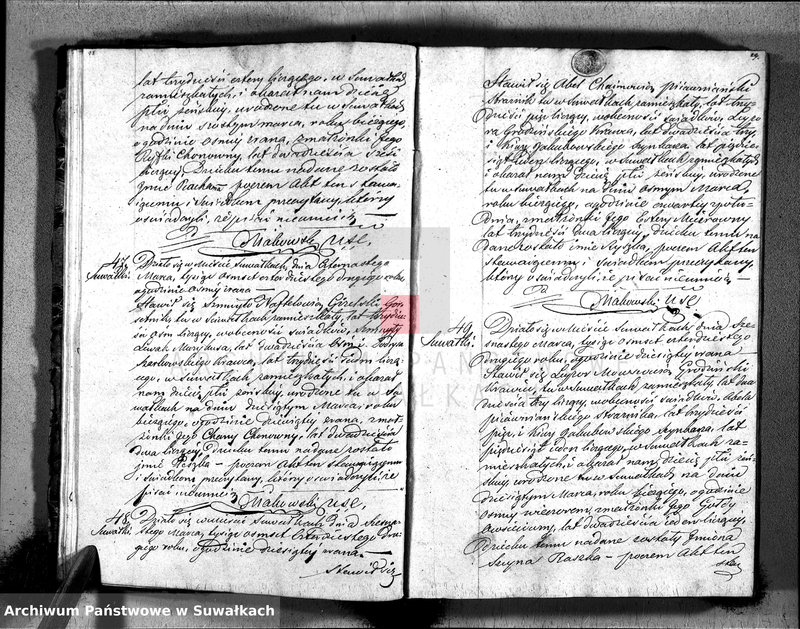 lat trzydzieści cztery liczącego, w Suwałkach
zamieszkałych, i okazał nam dziecię
płci żeńskiéj, urodzone tu w Suwałkach
na dniu szóstym marca, roku bieżącego,
o godzinie ósméy zrana, z małżonki jego
Ryfki Chonowny, lat dwadzieścia sześć
liczącéy Dziecku temu nadane zostało
imie Racham poczem Akt ten stawa-
jącemu i świadkom przeczytany, którzy
oświadczyli, iż pisać nieumieją
Makowski USC.
47.
Suwałki.
Działo się w Mieście Suwałkach, dnia czternastego
Marca, tysiąc ośmset czterdziestego drugiego roku,
o godzinie ósméy zrana
Stawił się Szmujło Naftelowicz
w Suwałkach zamieszkały, lat trzydzie-
ści ośm liczący, w obecności świadków,
lat dwadzieścia ośm i
Krawca, lat trzydzieści siedm liczą-
cego, w Suwałkach zamieszkałych, i okazał
nam dziecię płci żeńskiéj, urodzone tu w Su-
wałkach na dniu dziesiątym Marca, roku
bieżącego, o godzinie dziesiątéy zrana, z mał-
żonki jego Chany Chonowny, lat dwadzieścia
dwa liczącéy, dziecku temu nadane zostało
imie poczem Akt ten stawającemu
i świadkom przeczytany, którzy oświadczyli iż
pisać nieumieją
Makowski USC,
48.
Suwałki.
Działo się w mieście Suwałkach Dnia szesna-
stego Marca, tysiąc ośmset czterdziestego dru-
giego roku, o godzinie dziesiątéy zrana
Stawił się
Stawił się Abel Chaimowicz
Stolarnik tu w Suwałkach zamieszkały, lat trzy-
dzieści pięć liczący, w obecności świadków,
Grodzińskiego Krawca, lat dwadzieścia trzy,
i Kiwy Gałubowskiego Szynkarza, lat pięćdzie-
siąt siedem liczącego, w Suwałkach zamieszkałych
i okazał nam dziecię płci żeńskiéj, urodzone
tu w Suwałkach na dniu ósmym Marca,
roku bieżącego, o godzinie czwartéy z połu-
dnia, z małżonki jego Estry Mejerowny
lat trzydzieści dwa liczącéy, dziecku temu na-
dane zostało imie poczem Akt ten
stawającemu i świadkom przeczytany,
którzy oświadczyli, iż pisać nieumieją
Makowski USC
49.
Suwałki.
Działo się w Mieście Suwałkach dnia sze-
snastego Marca, tysiąc ośmset czterdziestego
drugiego roku, o godzinie dziesiątéy zrana
Stawił się Mowszowicz Grodziński
Krawiec, tu w Suwałkach zamieszkały, lat dwa-
dzieścia trzy liczący, w obecności świadków, Abela
lat trzydzieści
pięć, i Kiwy Gałubowskiego Szynkarza, lat
pięćdziesiąt siedem liczącego, w Suwałkach za-
mieszkałych, i okazał nam, dziecię płci żeń-
skiéj, urodzone tu w Suwałkach, na dniu
dziesiątym Marca, roku bieżącego, o godzinie
ósméy wieczorem, z małżonki jego Goldy
lat dwadzieścia jeden liczącéy,
dziecku temu nadane zostały Imiona
Szejna Raszka poczem Akt ten
Archiwum Państwowe w Suwałkach